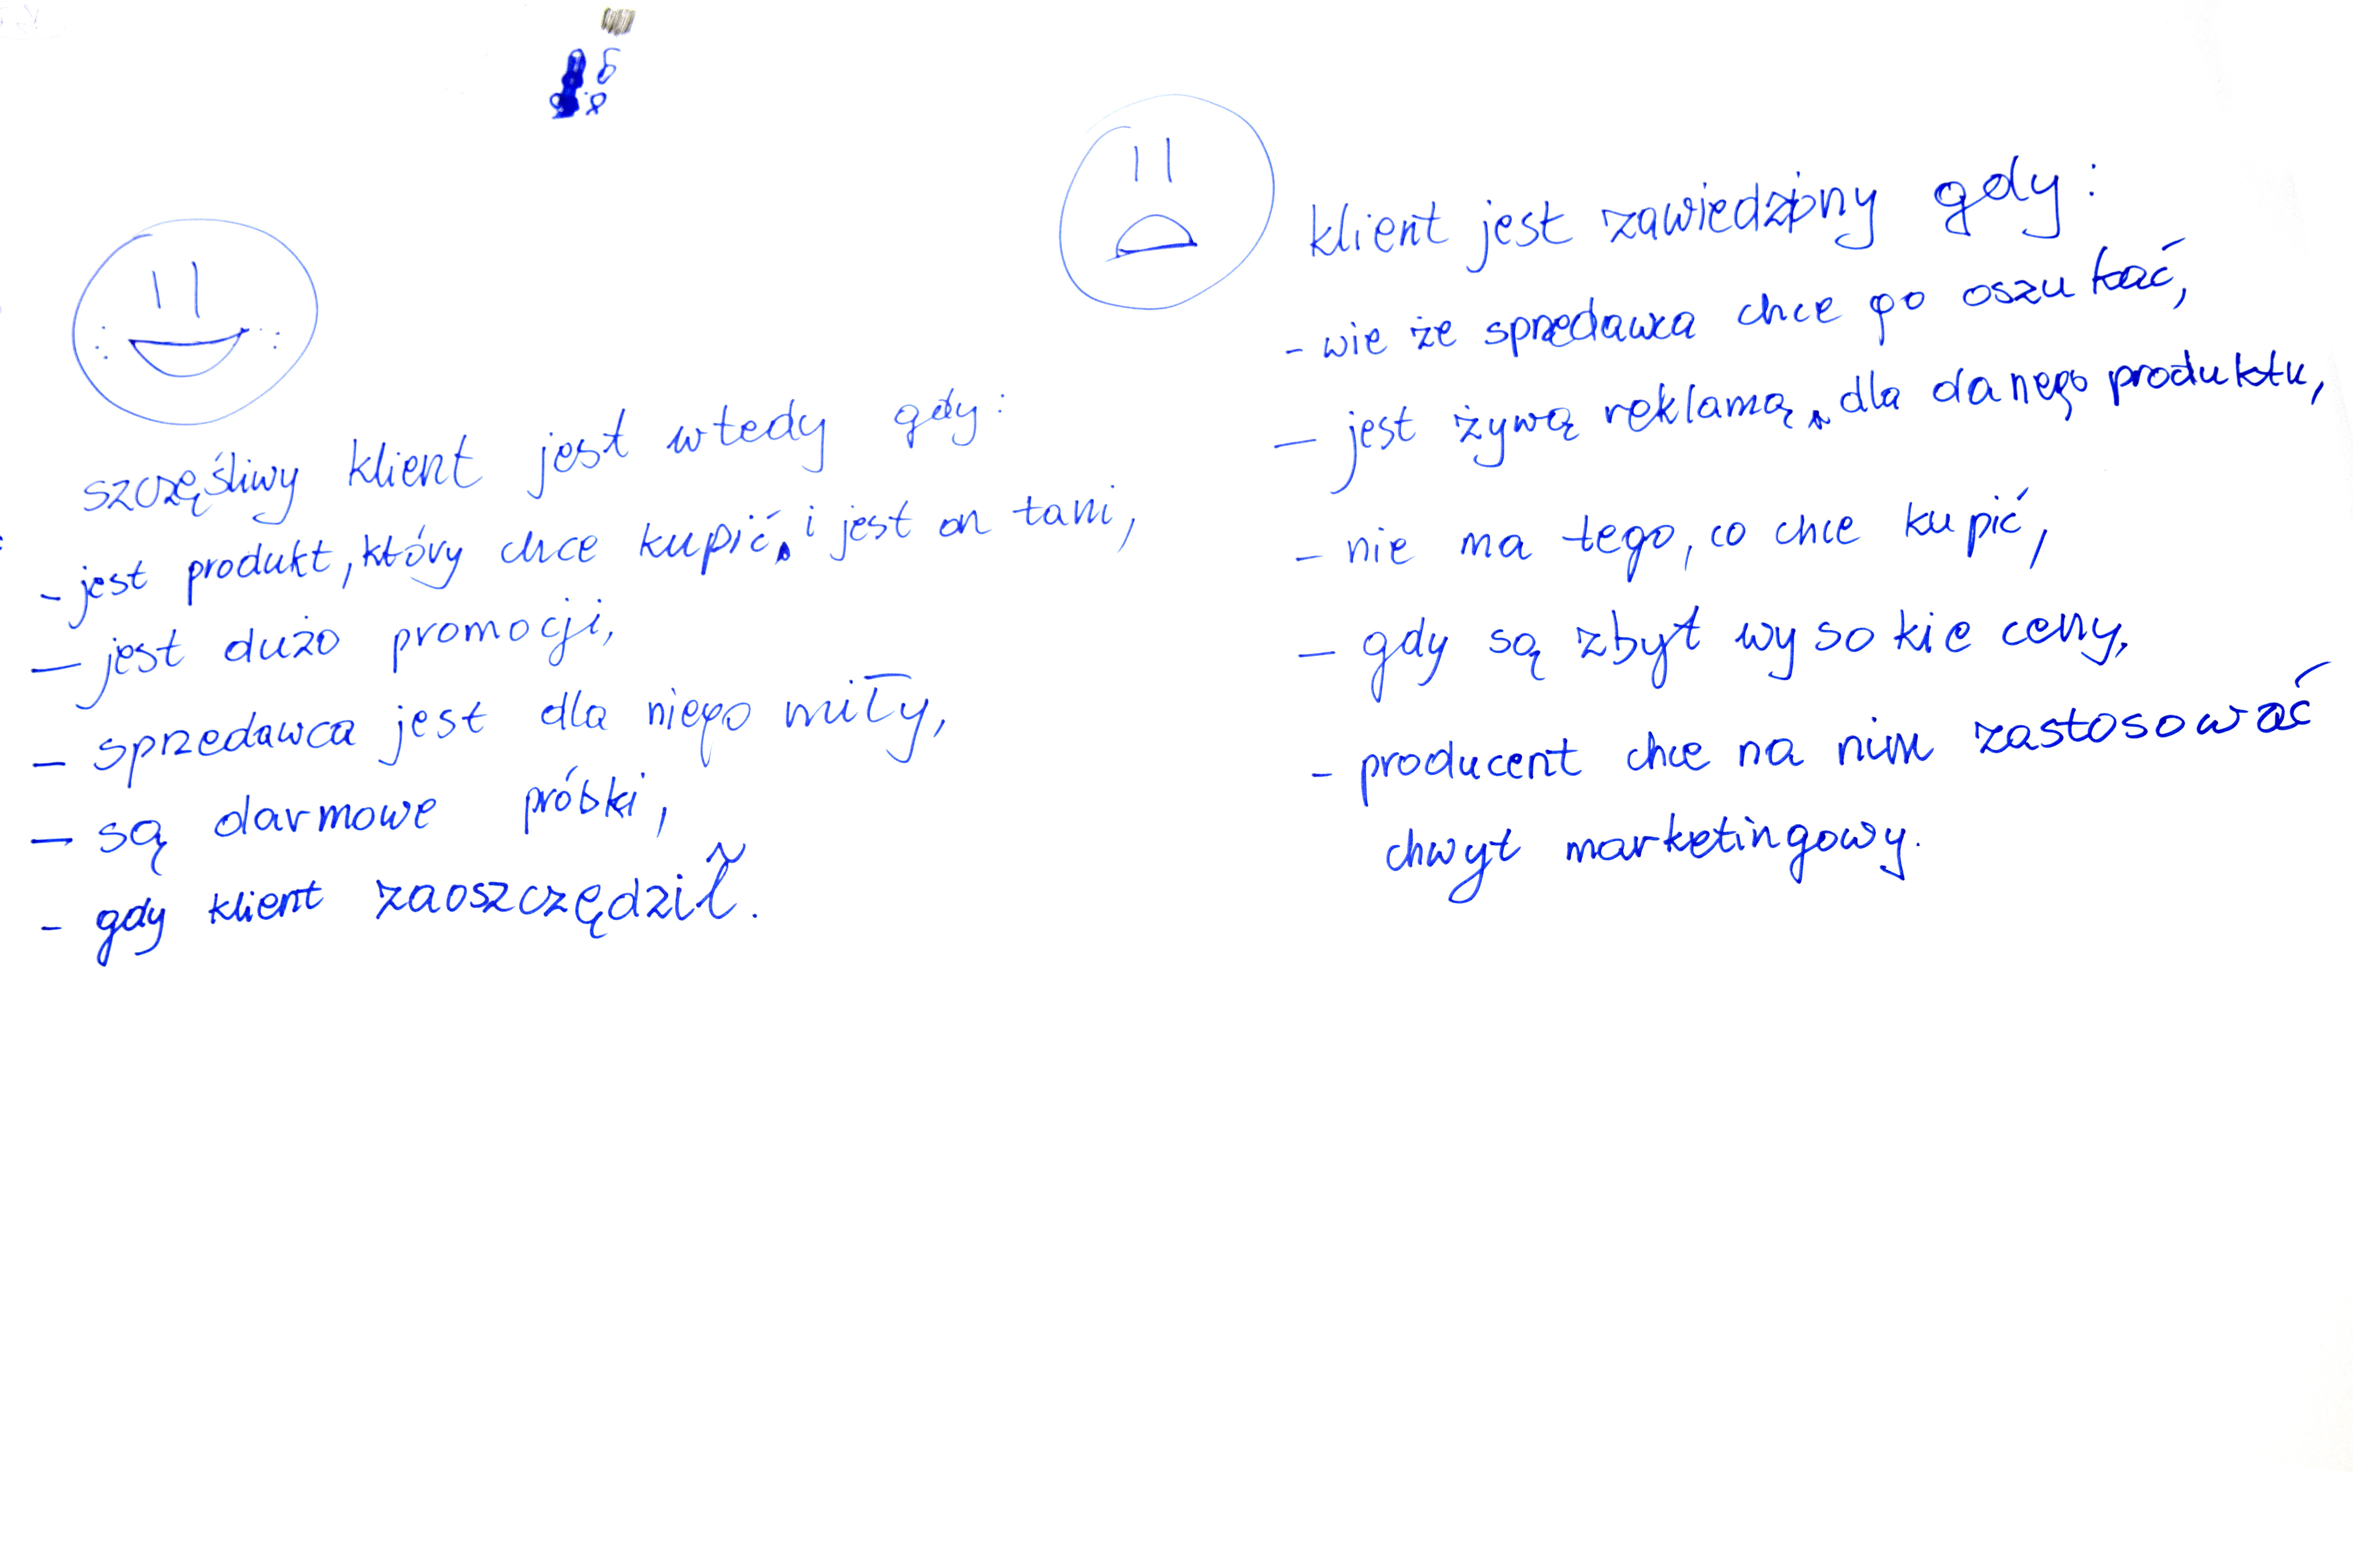 szczęśliwy klient jest wtedy gdy:
- jest produkt, który chce kupić i jest on tani,
- jest dużo promocji,
- sprzedawca jest dla niego miły,
- są darmowe próbki,
- gdy klient zaoszczędził.
klient jest zawiedziony gdy:
- wie że sprzedawca chce go oszukać,
- jest żywą reklamą dla danego produktu,
- nie ma tego, co chce kupić,
- gdy są zbyt wysokie ceny,
- producent chce na nim zastosować
chwyt marketingowy.